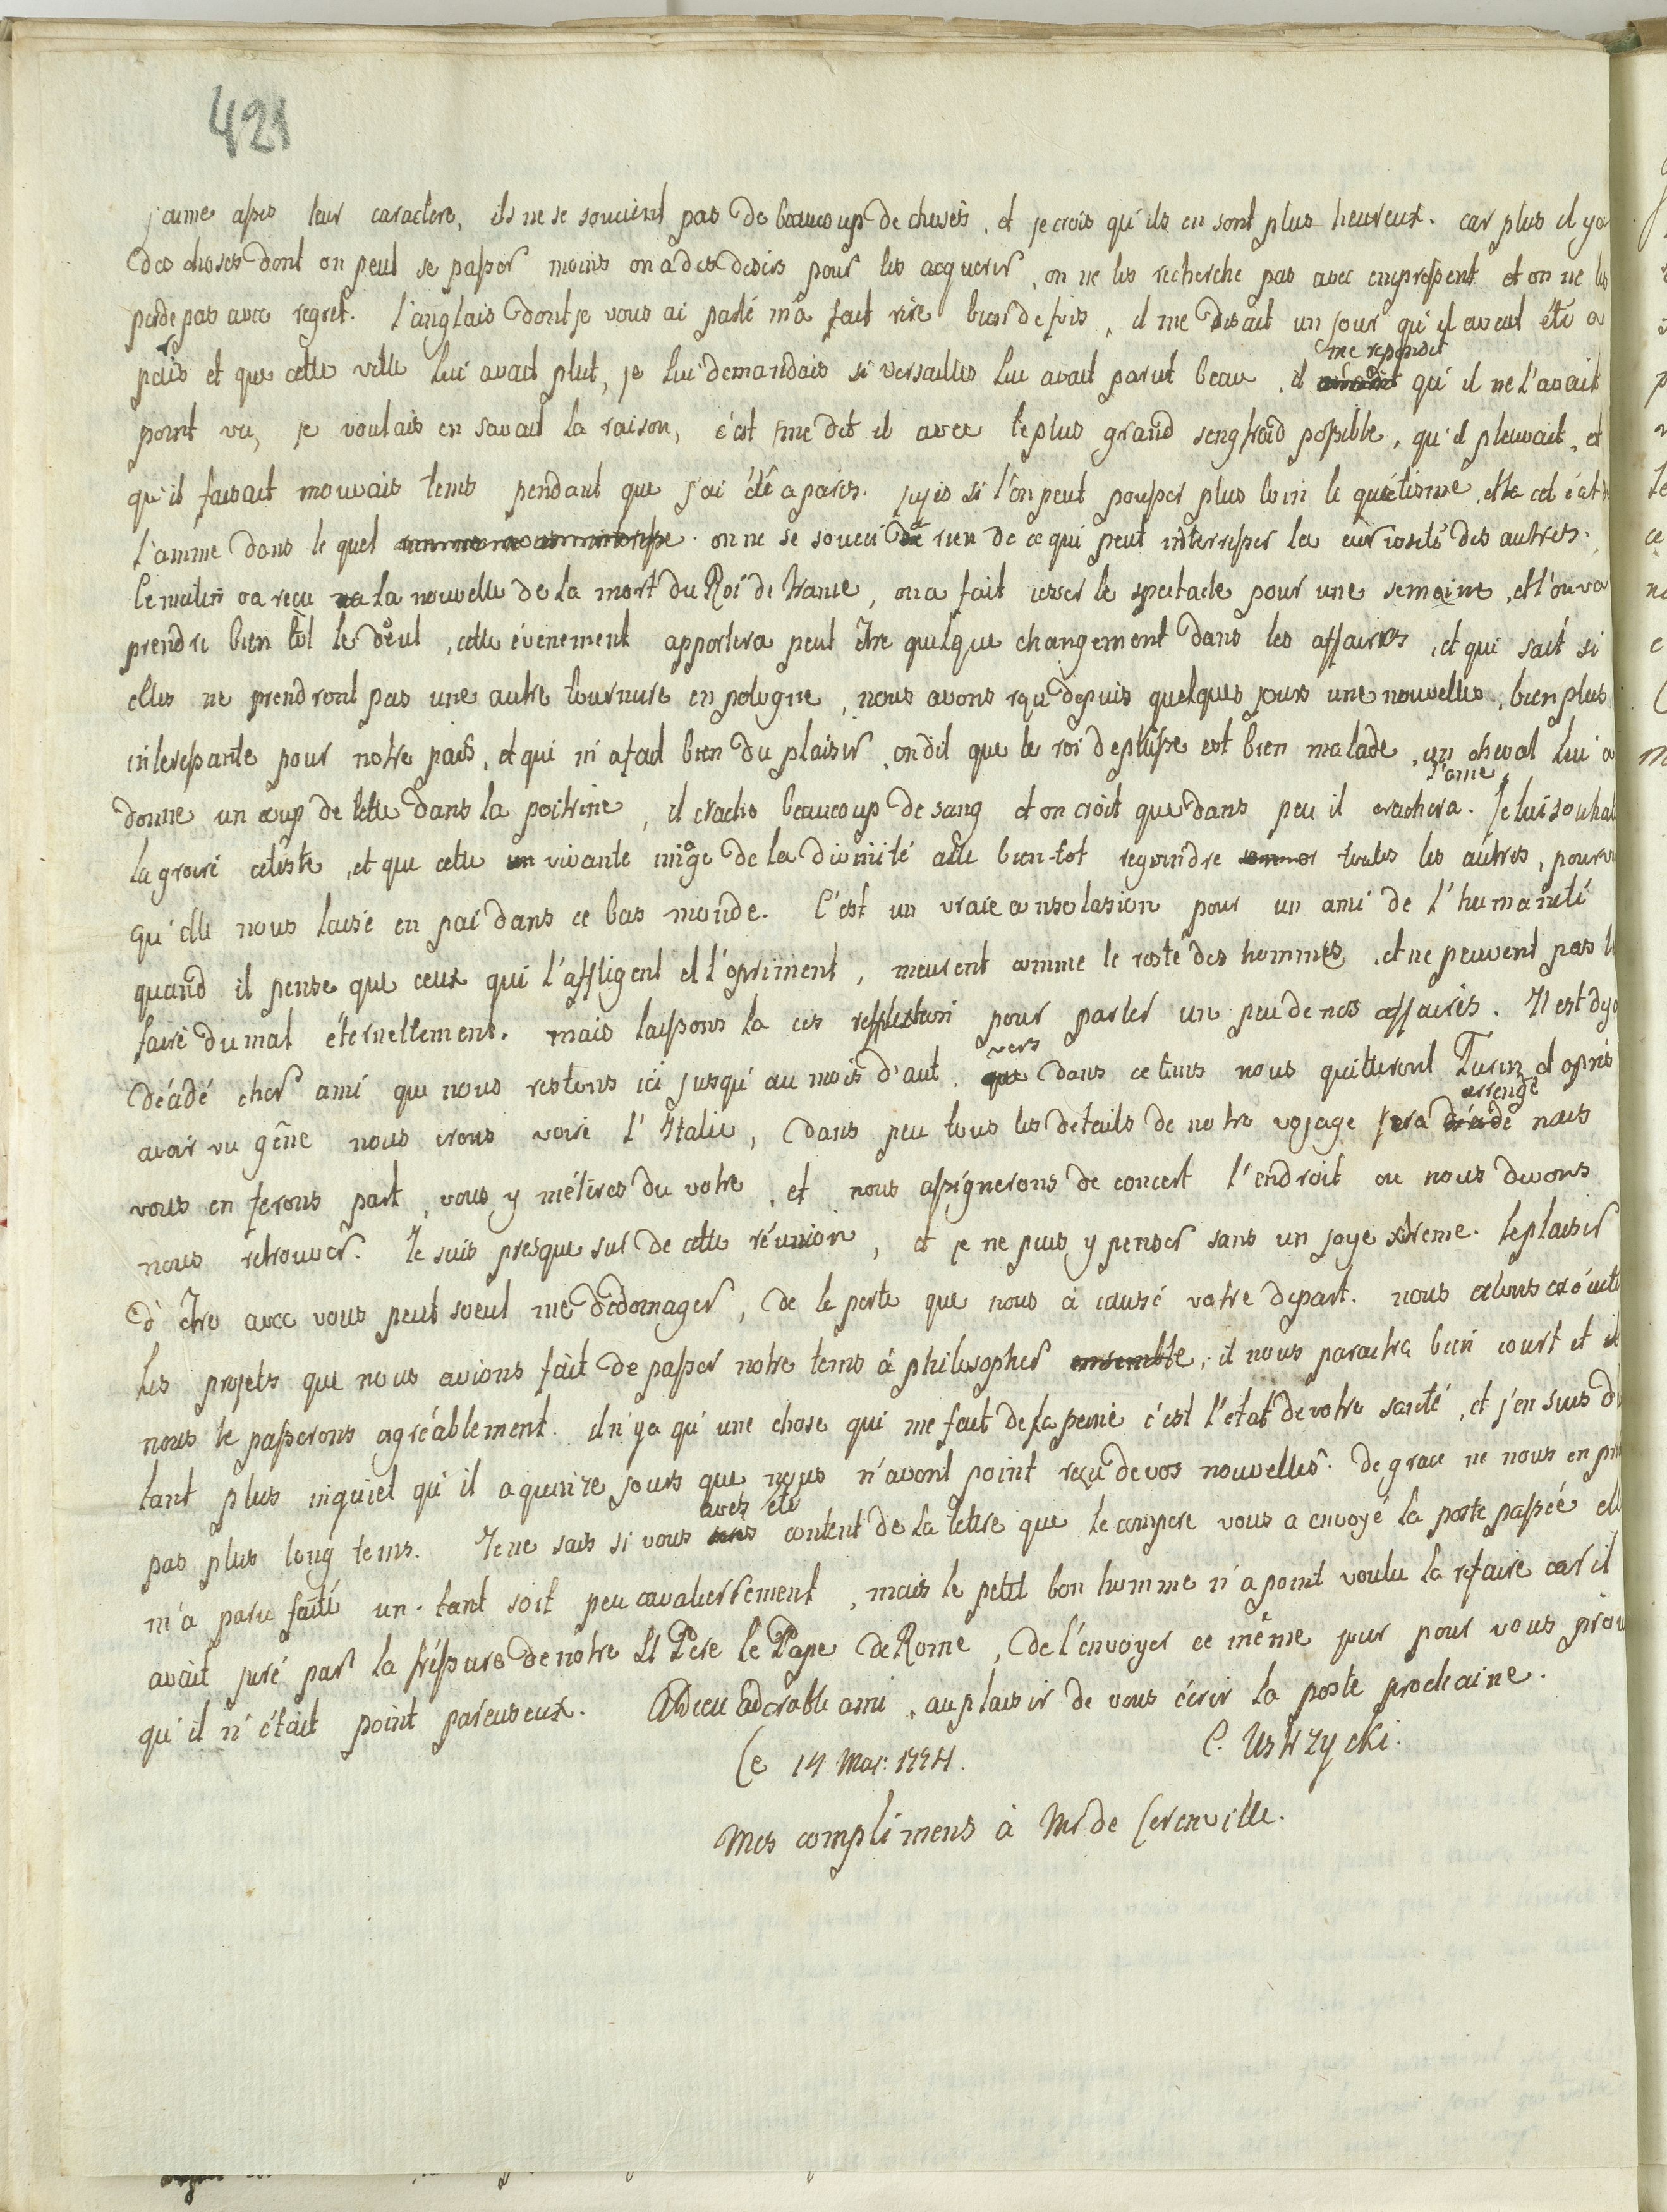 421
j'aime assés leur caractere, ils ne se soucient pas de beaucoup de choses, et je crois qu'ils en sont plus heureux. car plus il ya
des choses dont on peut se passer moins on a des desirs pour les acquerir, on ne les recherche pas avec empressent et on ne les
perde pas avec regret. l'anglais dont je vous ai parlé m'a fait rire bien de fois, il me disait un jour qu'il avait été a
paris et que cette ville lui avait plut, je lui demandais si versailles lui avait parut beau, il me repondit qu'il ne l'avait
point vu, je voulais en savait la raison, c'est me dit il avec le plus grand sengfroid possible, qu'il pleuvait, et
qu'il faisait mouvais tems pendant que j'ai été a paris. jugés si l'on peut pousser plus loin le quiétisme, et cet état de
l'amme dans le quel on ne se souci de rien de ce qui peut interresser la curiosité des autres.
Ce matin on a reçu la nouvelle de la mort du Roi de france, on a fait cesser le spectacle pour une semaine, et l'on va
prendre bien tôt le deul, cette évenement apportera peut être quelque changement dans les affaires, et qui sait si
elles ne prendront pas une autre tournure en pologne, nous avons reçu depuis quelques jours une nouvelles, bien plus
interessante pour notre païs, et qui m'a fait bien du plaisir, on dit que le roi de prusse est bien malade, un cheval lui a
donne un coup de tette dans la poitrine, il crache beaucoup de sang et on croit que dans peu il crachera l'ame. Je lui souhait
la gloire celeste, et que cette vivante image de la divinité aille bien-tot rejoindre toutes les autres, pourvu
qu'elle nous laisse en pai dans ce bas monde. C'est un vraie consolasion pour un ami de l'humanité
quand il pense que ceux qui l'affligent et l'opriment, meurent comme le reste des hommes, et ne peuvent pas lui
faire du mal éternellement. mais laissons la ces reflection pour parler un peu de nos affaires. Il est deja
décidé cher ami que nous restons ici jusqu'au mois d'aut, vers dans ce tems nous quitteront Turin et aprés
avoir vu gêne nous irons voire l'Italie, dans peu tous les details de notre voyage sera arrengé nous
vous en ferons part, vous y méteres du votre, et nous assignerons de concert l'endroit ou nous devons
nous retrouver. Je suis presque sur de cette réunion, et je ne puis y penser sans un joye extreme. le plaisir
d'être avec vous peut soeul me dédomager, de la perte que nous à causé votre depart. nous alons exécuter
les projets que nous avions fait de passer notre tems à philosopher ensemble, il nous paraitra bien court et
nous le passerons agréablement. il n'ya qu'une chose qui me fait de la peine c'est l'etat de votre santé, et j'en suis d'
tant plus inquiet qu'il a quinze jours que nous n'avont point reçu de vos nouvelles. de grace ne nous en
pas plus long tems. Je ne sais si vous avez été content de la lettre que le compere vous a envoyé la poste passée
m'a paru faite un tant soit peu cavalierrement, mais le petit bon homme n'a point voulu la refaire car il
avait juré par la fréssure de notre St Pere le Pape de Rome, de l'envoyer ce même jour pour vous
qu'il n'était point pareuseux. Adieu adorable ami, au plaisir de vous écrir la poste prochaine.
Ce 14 Mai: 1774. C. Ustrzycki.
Mes complimens à Mr de Cerenville.